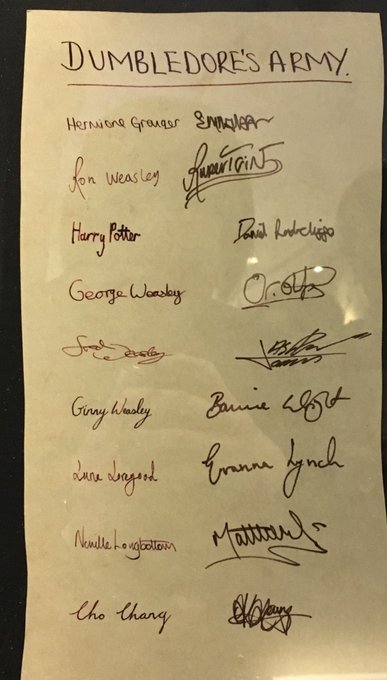 DUMBLEDORE'S ARMY.
Hermione Granger
Ron Weasley RupertGint
Harry Potter Daniel Radcliffe
George Weasley
Fred Weasley
Ginny Weasley Bonnie Wright
Luna Lovegood Evanna Lynch
Neville Longbottom Matthew
Cho Chang